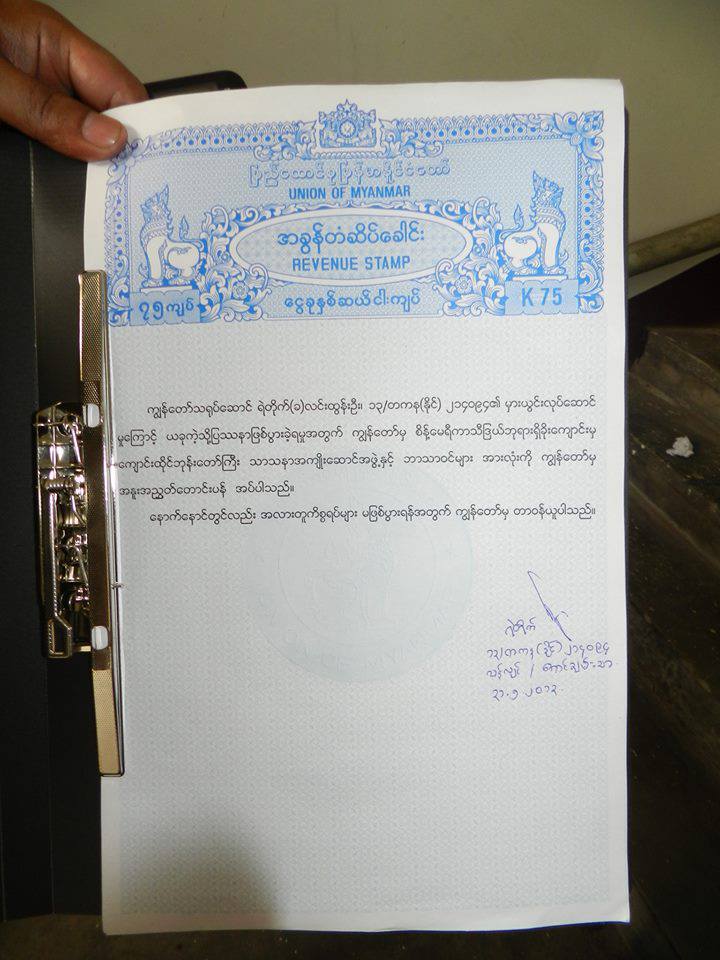 ပြည်ထောင်စုမြန်မာနိုင်ငံတော်
UNION OF MYANMAR
အခွန်တံဆိပ်ခေါင်း
REVENUE STAMP
၇၅ကျပ်
ငွေခုနှစ်ဆယ်ငါးကျပ်
K 75
ကျွန်တော်သရုပ်ဆောင် ရဲတိုက်(ခ)လင်းထွန်းဦး၊ ၁၃/တကန(နိုင်) ၂၁၄၀၉၄၏ မှားယွင်းလုပ်ဆောင်
မှုကြောင့် ယခုကဲ့သို့ပြဿနာဖြစ်ပွားခဲ့ရမှုအတွက် ကျွန်တော်မှ စိန့်မေရီကာသီဒြယ်ဘုရားရှိခိုးကျောင်းမှ
ကျောင်းထိုင်ဘုန်းတော်ကြီး သာသနာအကျိုးဆောင်အဖွဲ့နှင့် ဘာသာဝင်များ အားလုံးကို ကျွန်တော်မှ
အနူးအညွတ်တောင်းပန် အပ်ပါသည်။
နောက်နောင်တွင်လည်း အလားတူကိစ္စရပ်များ မဖြစ်ပွားရန်အတွက် ကျွန်တော်မှ တာဝန်ယူပါသည်။
ရဲတိုက်
၁၃/တကန(နိုင်) ၂၁၄၀၉၄